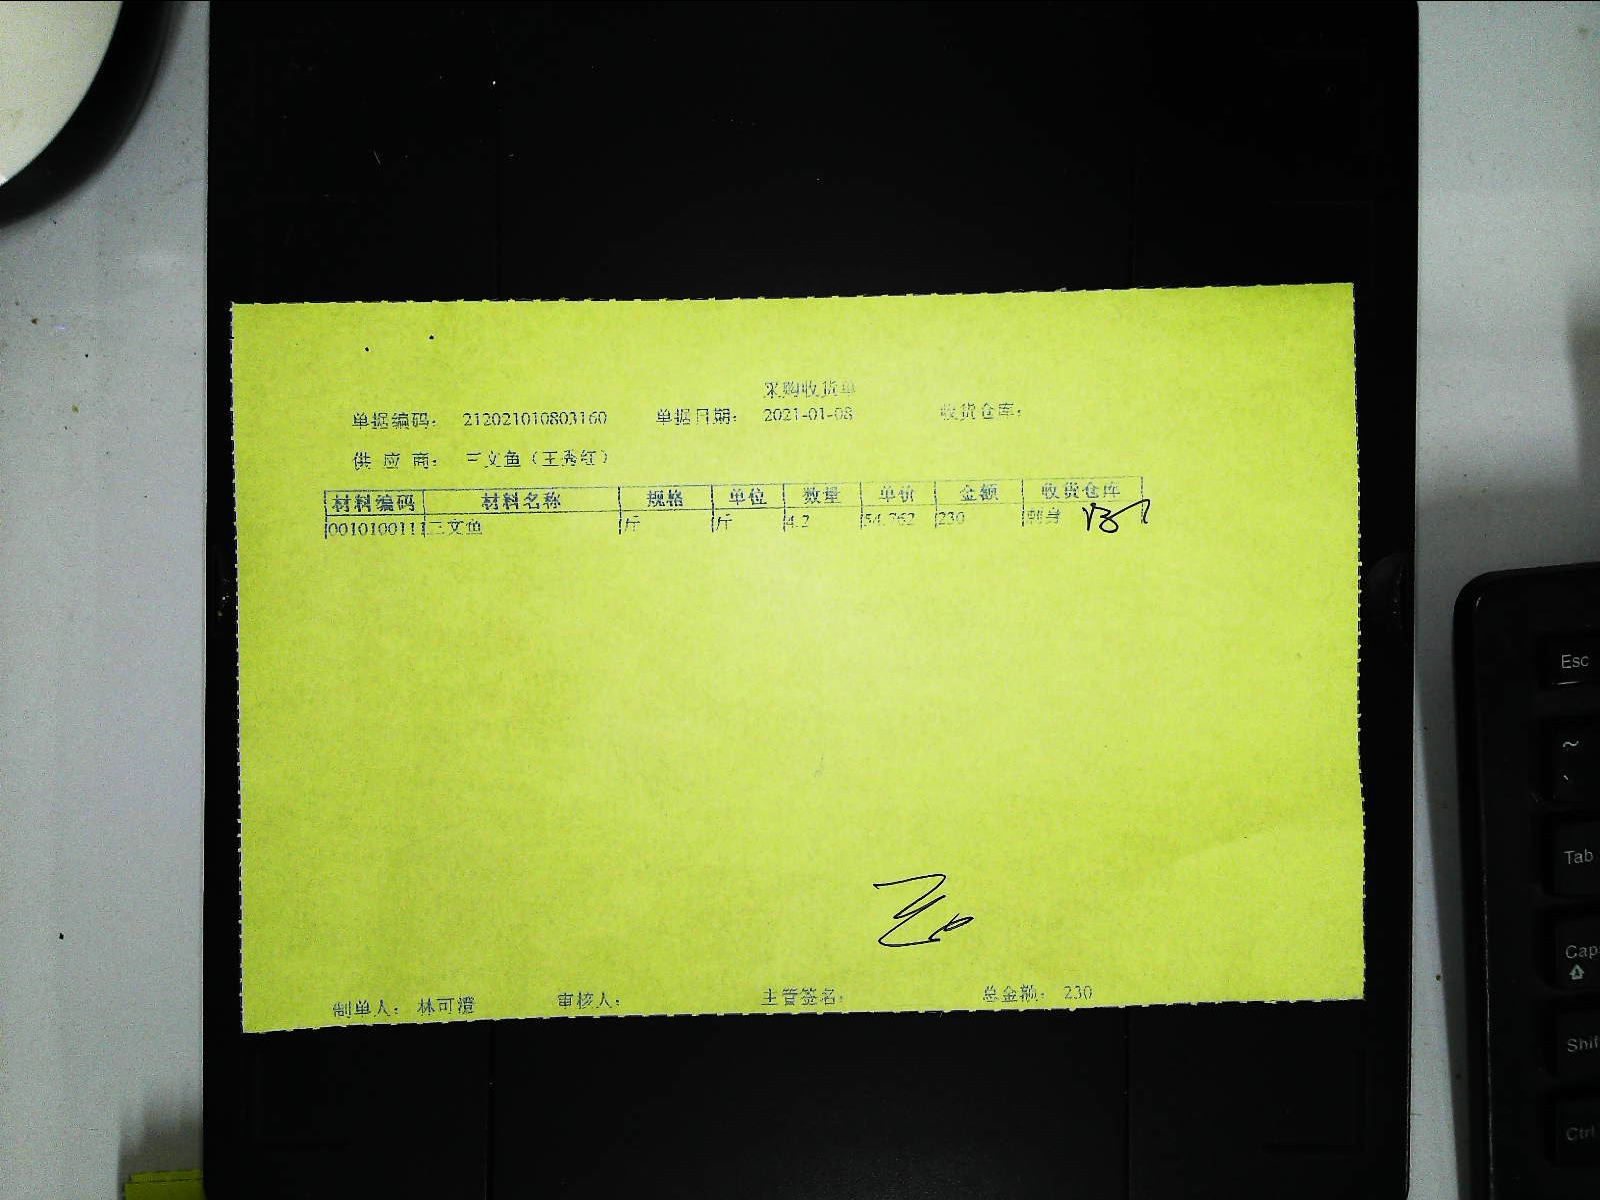 采购收货单
单据编码： 212021010803160 单据日期： 2021-01-08 收货仓库：
供 应 商： 三文鱼（王秀红）
材料编码 材料名称 规格 单位 数量 单价 金额 收货仓库
0010100111 三文鱼 斤 斤 4.2 54.762 230 刺身
制单人： 林可澄 审核人： 主管签名： 总金额： 230
Esc
~
`
Tab
Cap
Shif
Ctrl